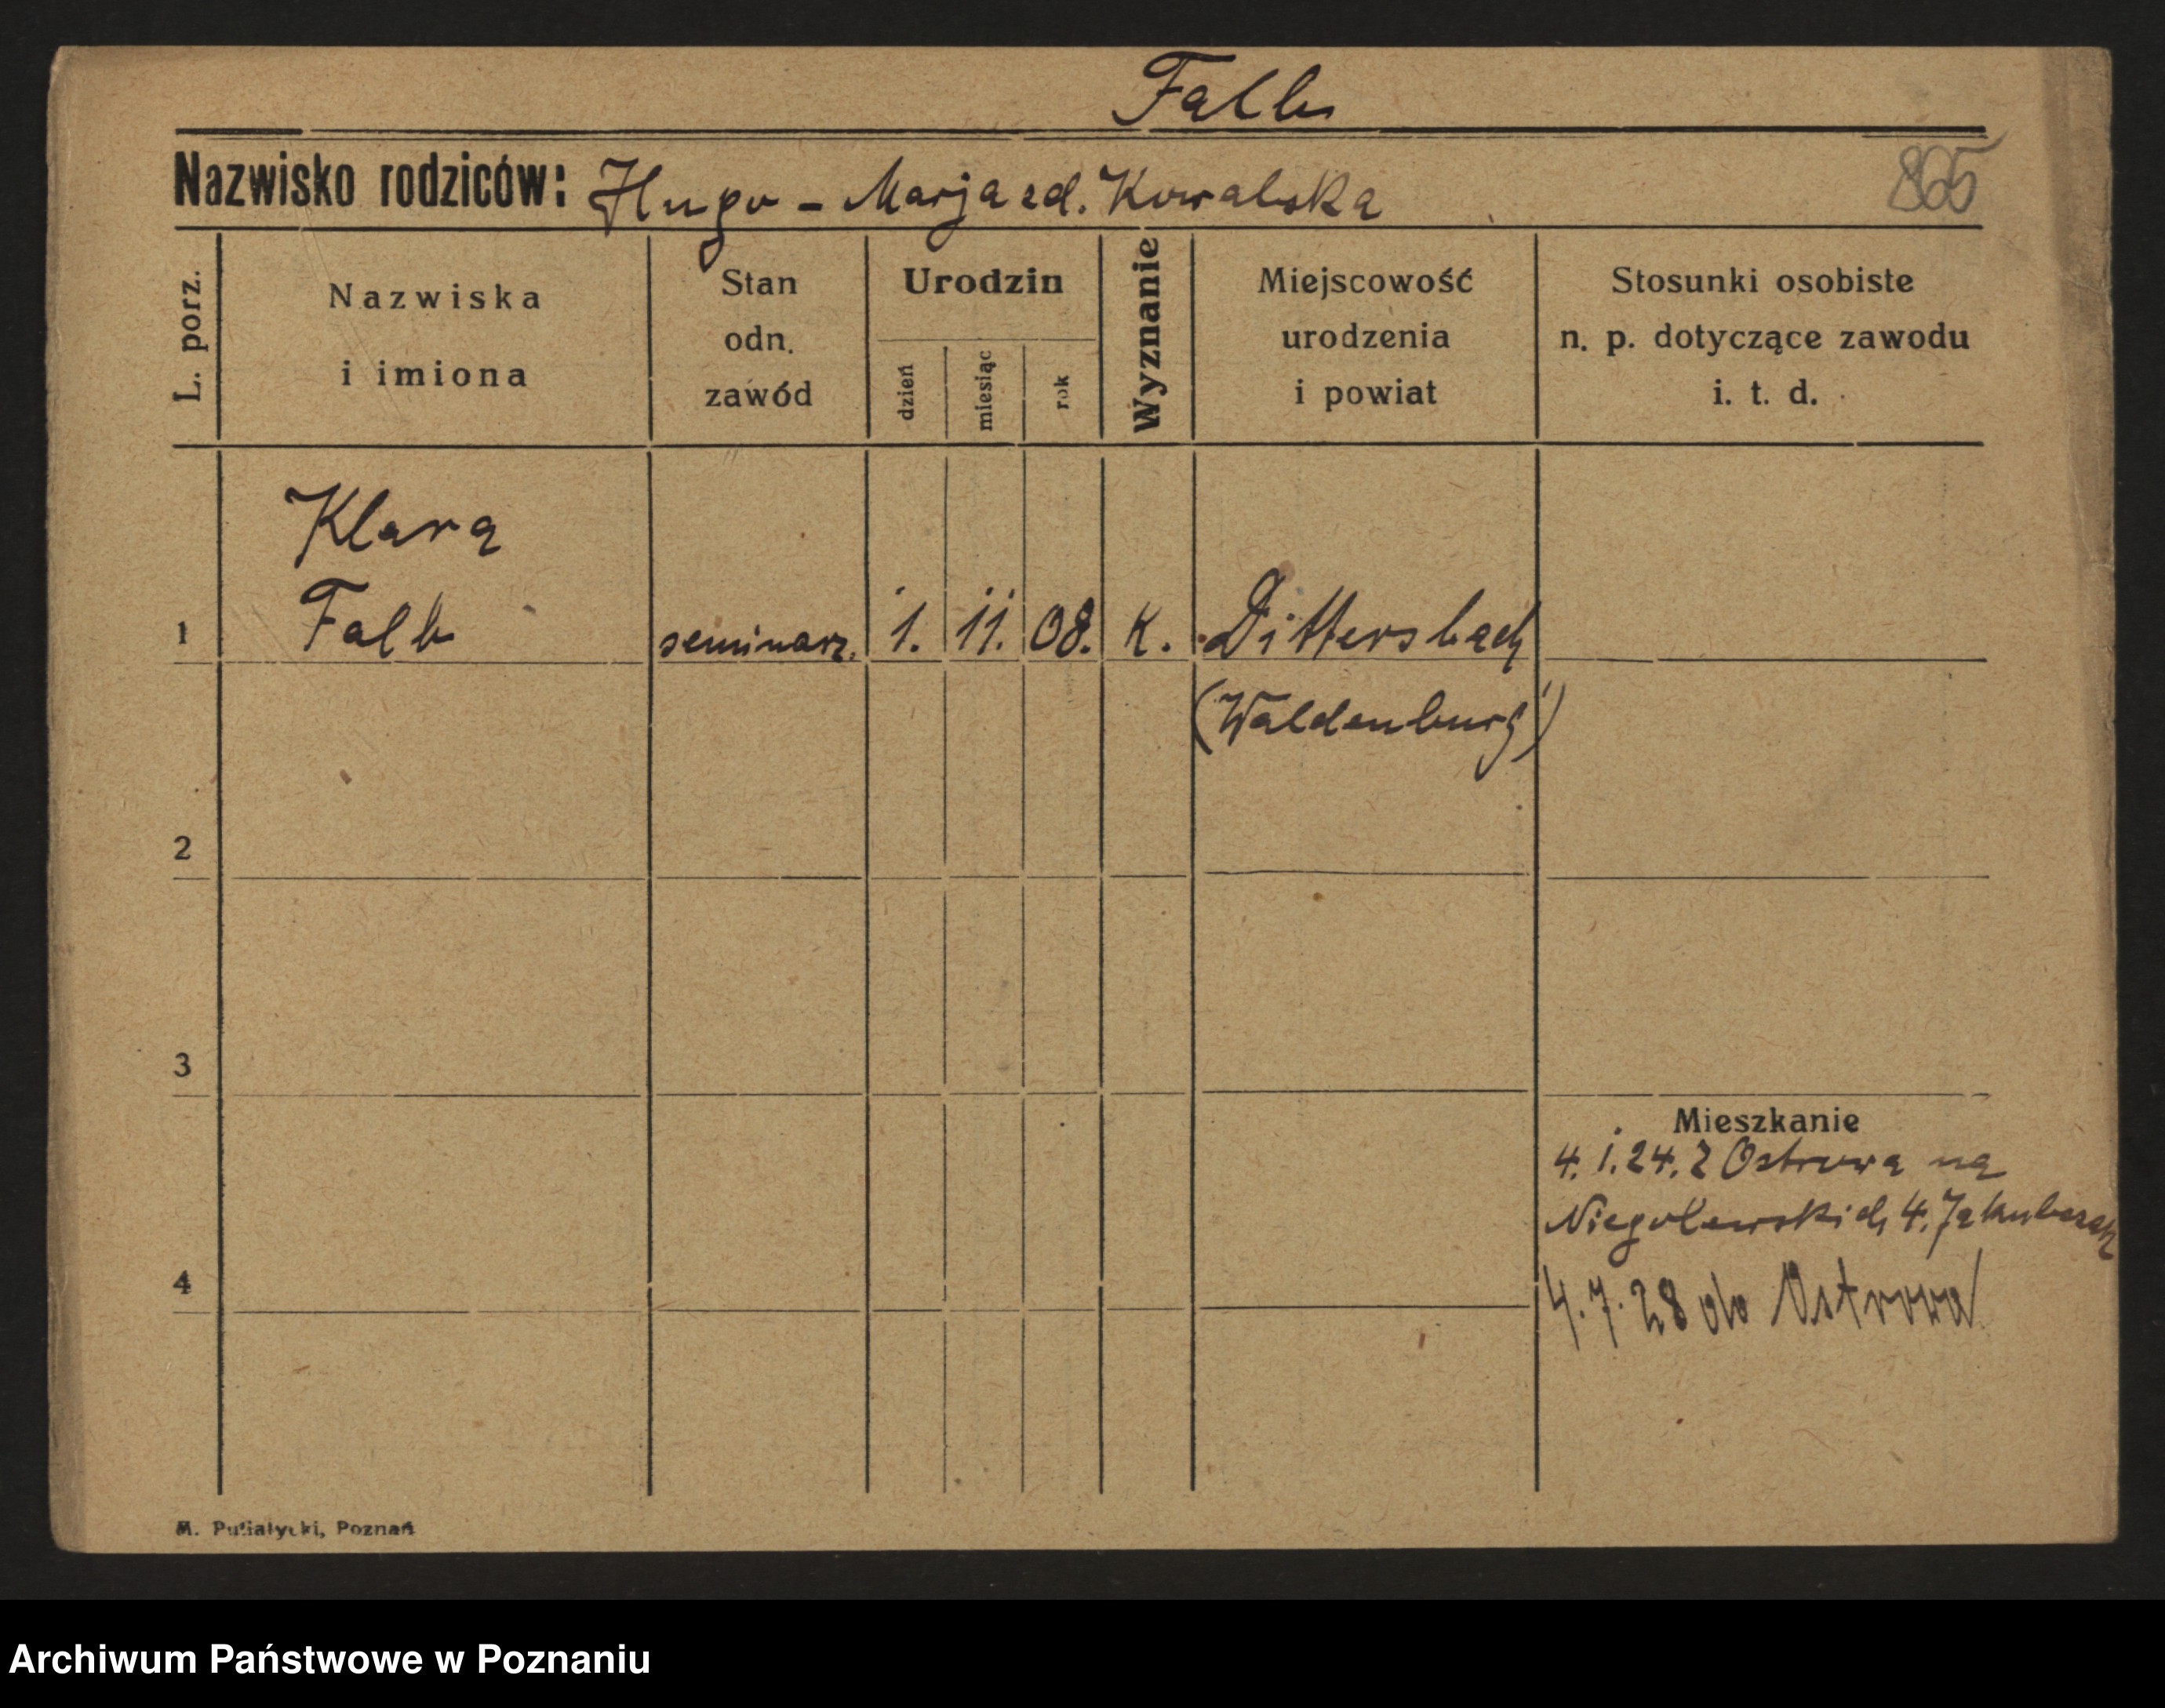 Falb
Nazwisko rodziców: Hugo - Marja zd. Kowalska
865
L. porz.
Nazwiska
i imiona
Stan
odn.
zawód
Urodzin
dzień
miesiąc
rok
Wyznanie
Miejscowość
urodzenia
i powiat
Stosunki osobiste
n. p. dotyczące zawodu
i. t. d.
Klara
1 Falb seminarz. 1. 11. 08. k. Dittersbach
(Waldenburg)
2
3
Mieszkanie
4. 1. 24. z Ostrowa na
Niegolewskich 4. Jakubczak
4
4. 7. 28 do Ostrowa
M. Putiatycki, Poznań
Archiwum Państwowe w Poznaniu